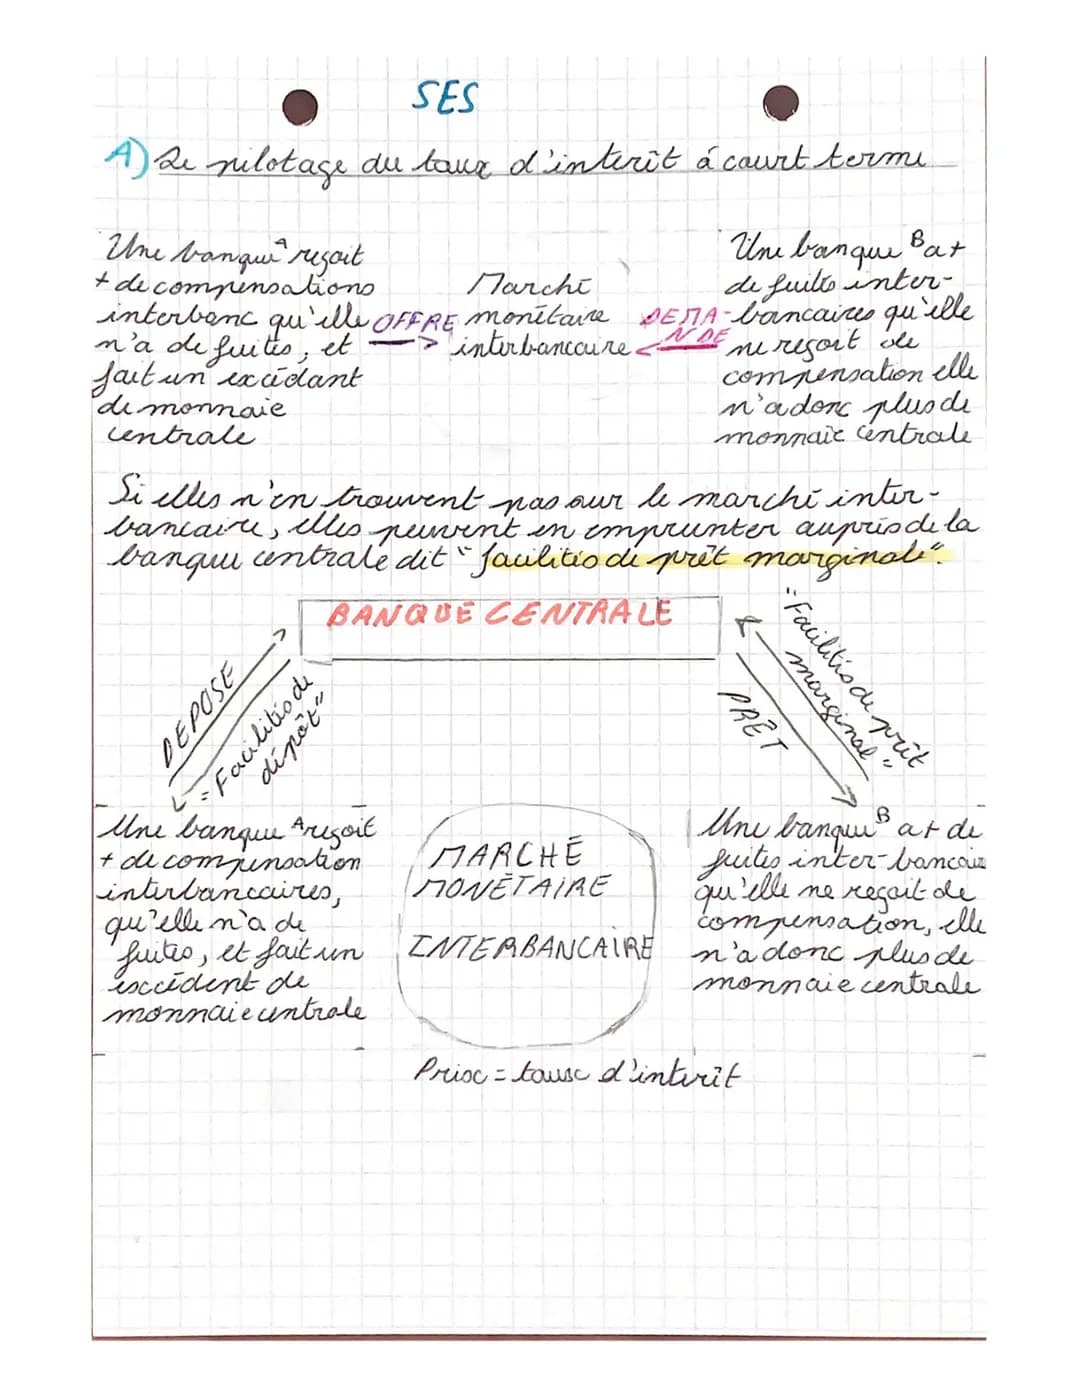 SES
A) Le pilotage du taux d'interêt á court terme
Une banque A reçoit
+ de compensations
interbanc qu'elle
n'a de fuites, et
fait un excédant
de monnaie
centrale
OFFRE
Marché
monétaire
interbancaire
DEMA-
NDE
Une banque B a +
de fuites inter-
bancaires qu'elle
ne reçoit de
compensation elle
n'a donc plus de
monnaie centrale
Si elles n'en trouvent pas sur le marché inter-
bancaire, elles peuvent en emprunter auprès de la
banque centrale dit "facilités de prêt marginale".
BANQUE CENTRALE
DEPOSE
"Facilités de
dépôt"
PRÊT
"Facilités de prêt
marginal"
Une banque A reçoit
+ de compensation
interbancaires,
qu'elle n'a de
fuites, et fait un
excédent de
monnaie centrale
MARCHÉ
MONÉTAIRE
INTERBANCAIRE
Une banque B a + de
fuites inter-bancaire
qu'elle ne reçoit de
compensation, elle
n'a donc plus de
monnaie centrale
Prix = taux d'intérêt